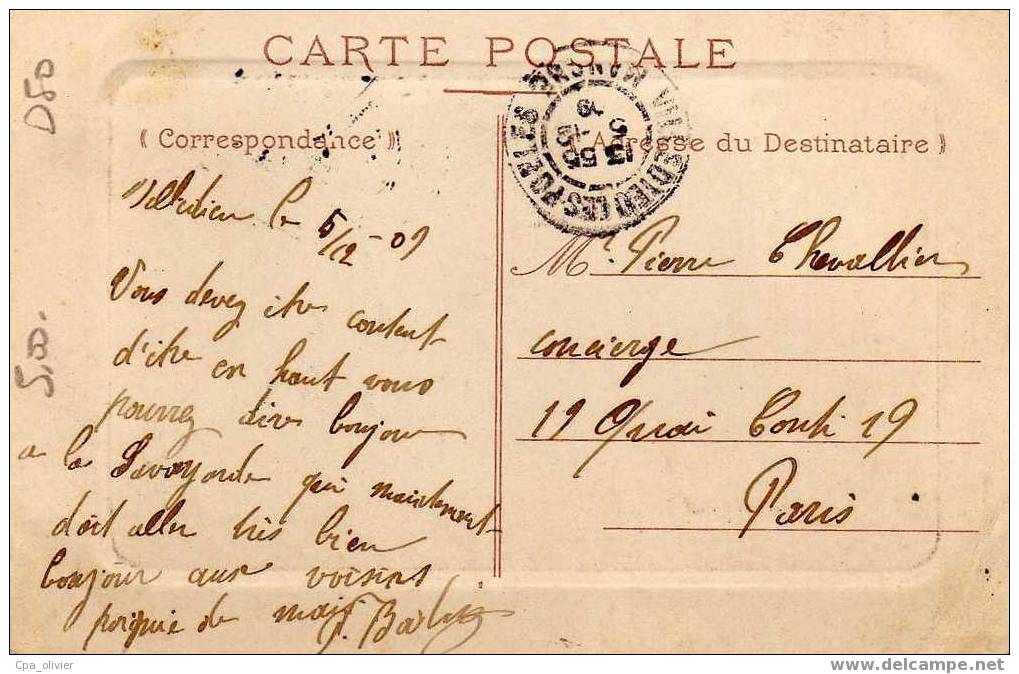 CARTE POSTALE
D50
5,00.
VILLEDIEU LES POELES MANCHE
« Correspondance »
Villedieu le 5/12-09
Vous devez être content
d'être en haut vous
pourrez dire bonjour
a la Savoyarde qui maintenant
doit aller très bien
bonjour aux voisins
poignée de main
« Adresse du Destinataire »
Mr. Pierre Chevallier
concierge
19 Quai Conti 19
Paris
Cpa_olivier
www.delcampe.net